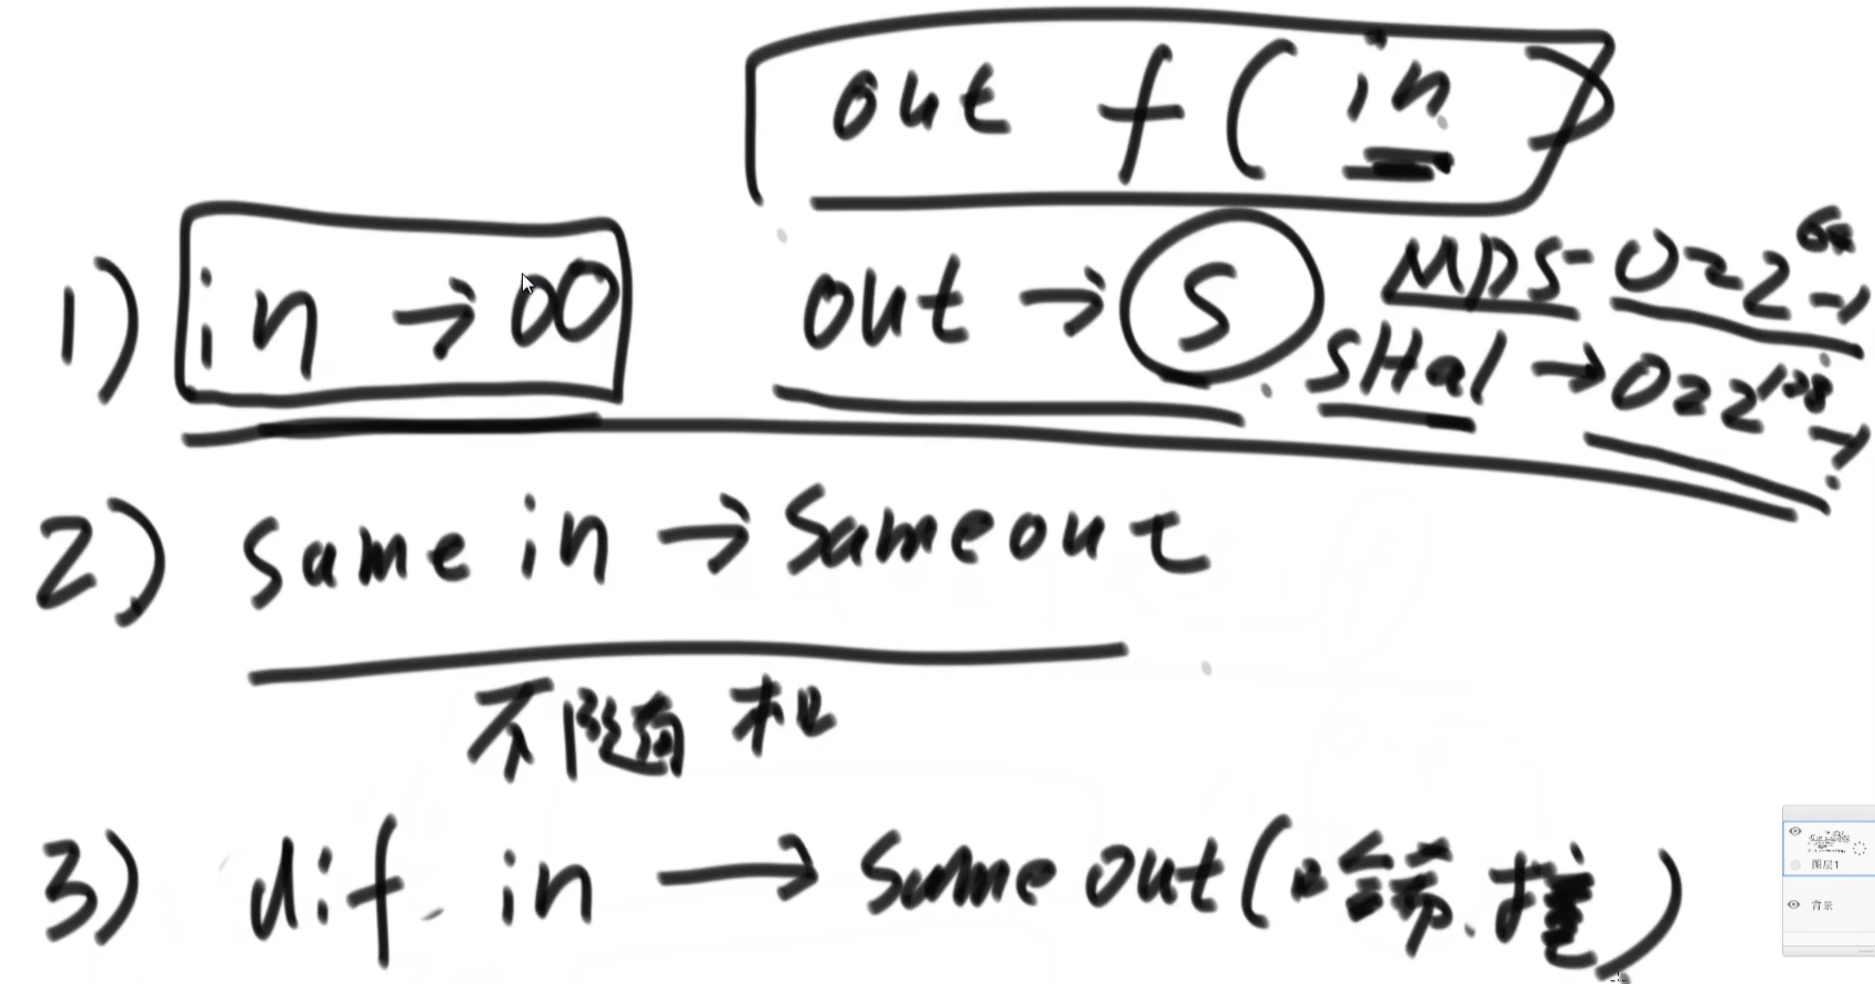 out f(in)
1) in → ∞ out → S MD5-0~2^64-1
SHa1 → 0~2^128-1
2) Same in → Same out
不随机
3) dif. in → Same out (哈希.撞)
图层1
背景